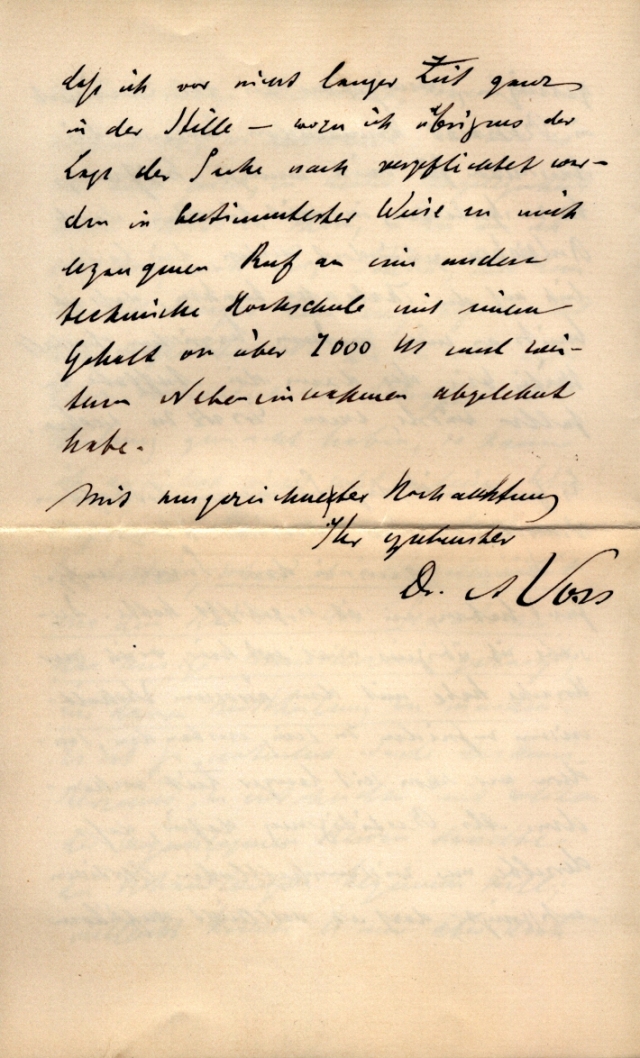 daß ich vor nicht langer Zeit ganz
in der Stille — wozu ich übrigens der
Lage der Sache nach verpflichtet wor-
den in bestimmtester Weise an mich
ergangenen Ruf an eine andere
technische Hochschule mit einem
Gehalt von über 7000 M und wei-
teren Nebeneinnahmen abgelehnt
habe.
Mit ausgezeichneter Hochachtung
Ihr ergebenster
Dr. A Voss